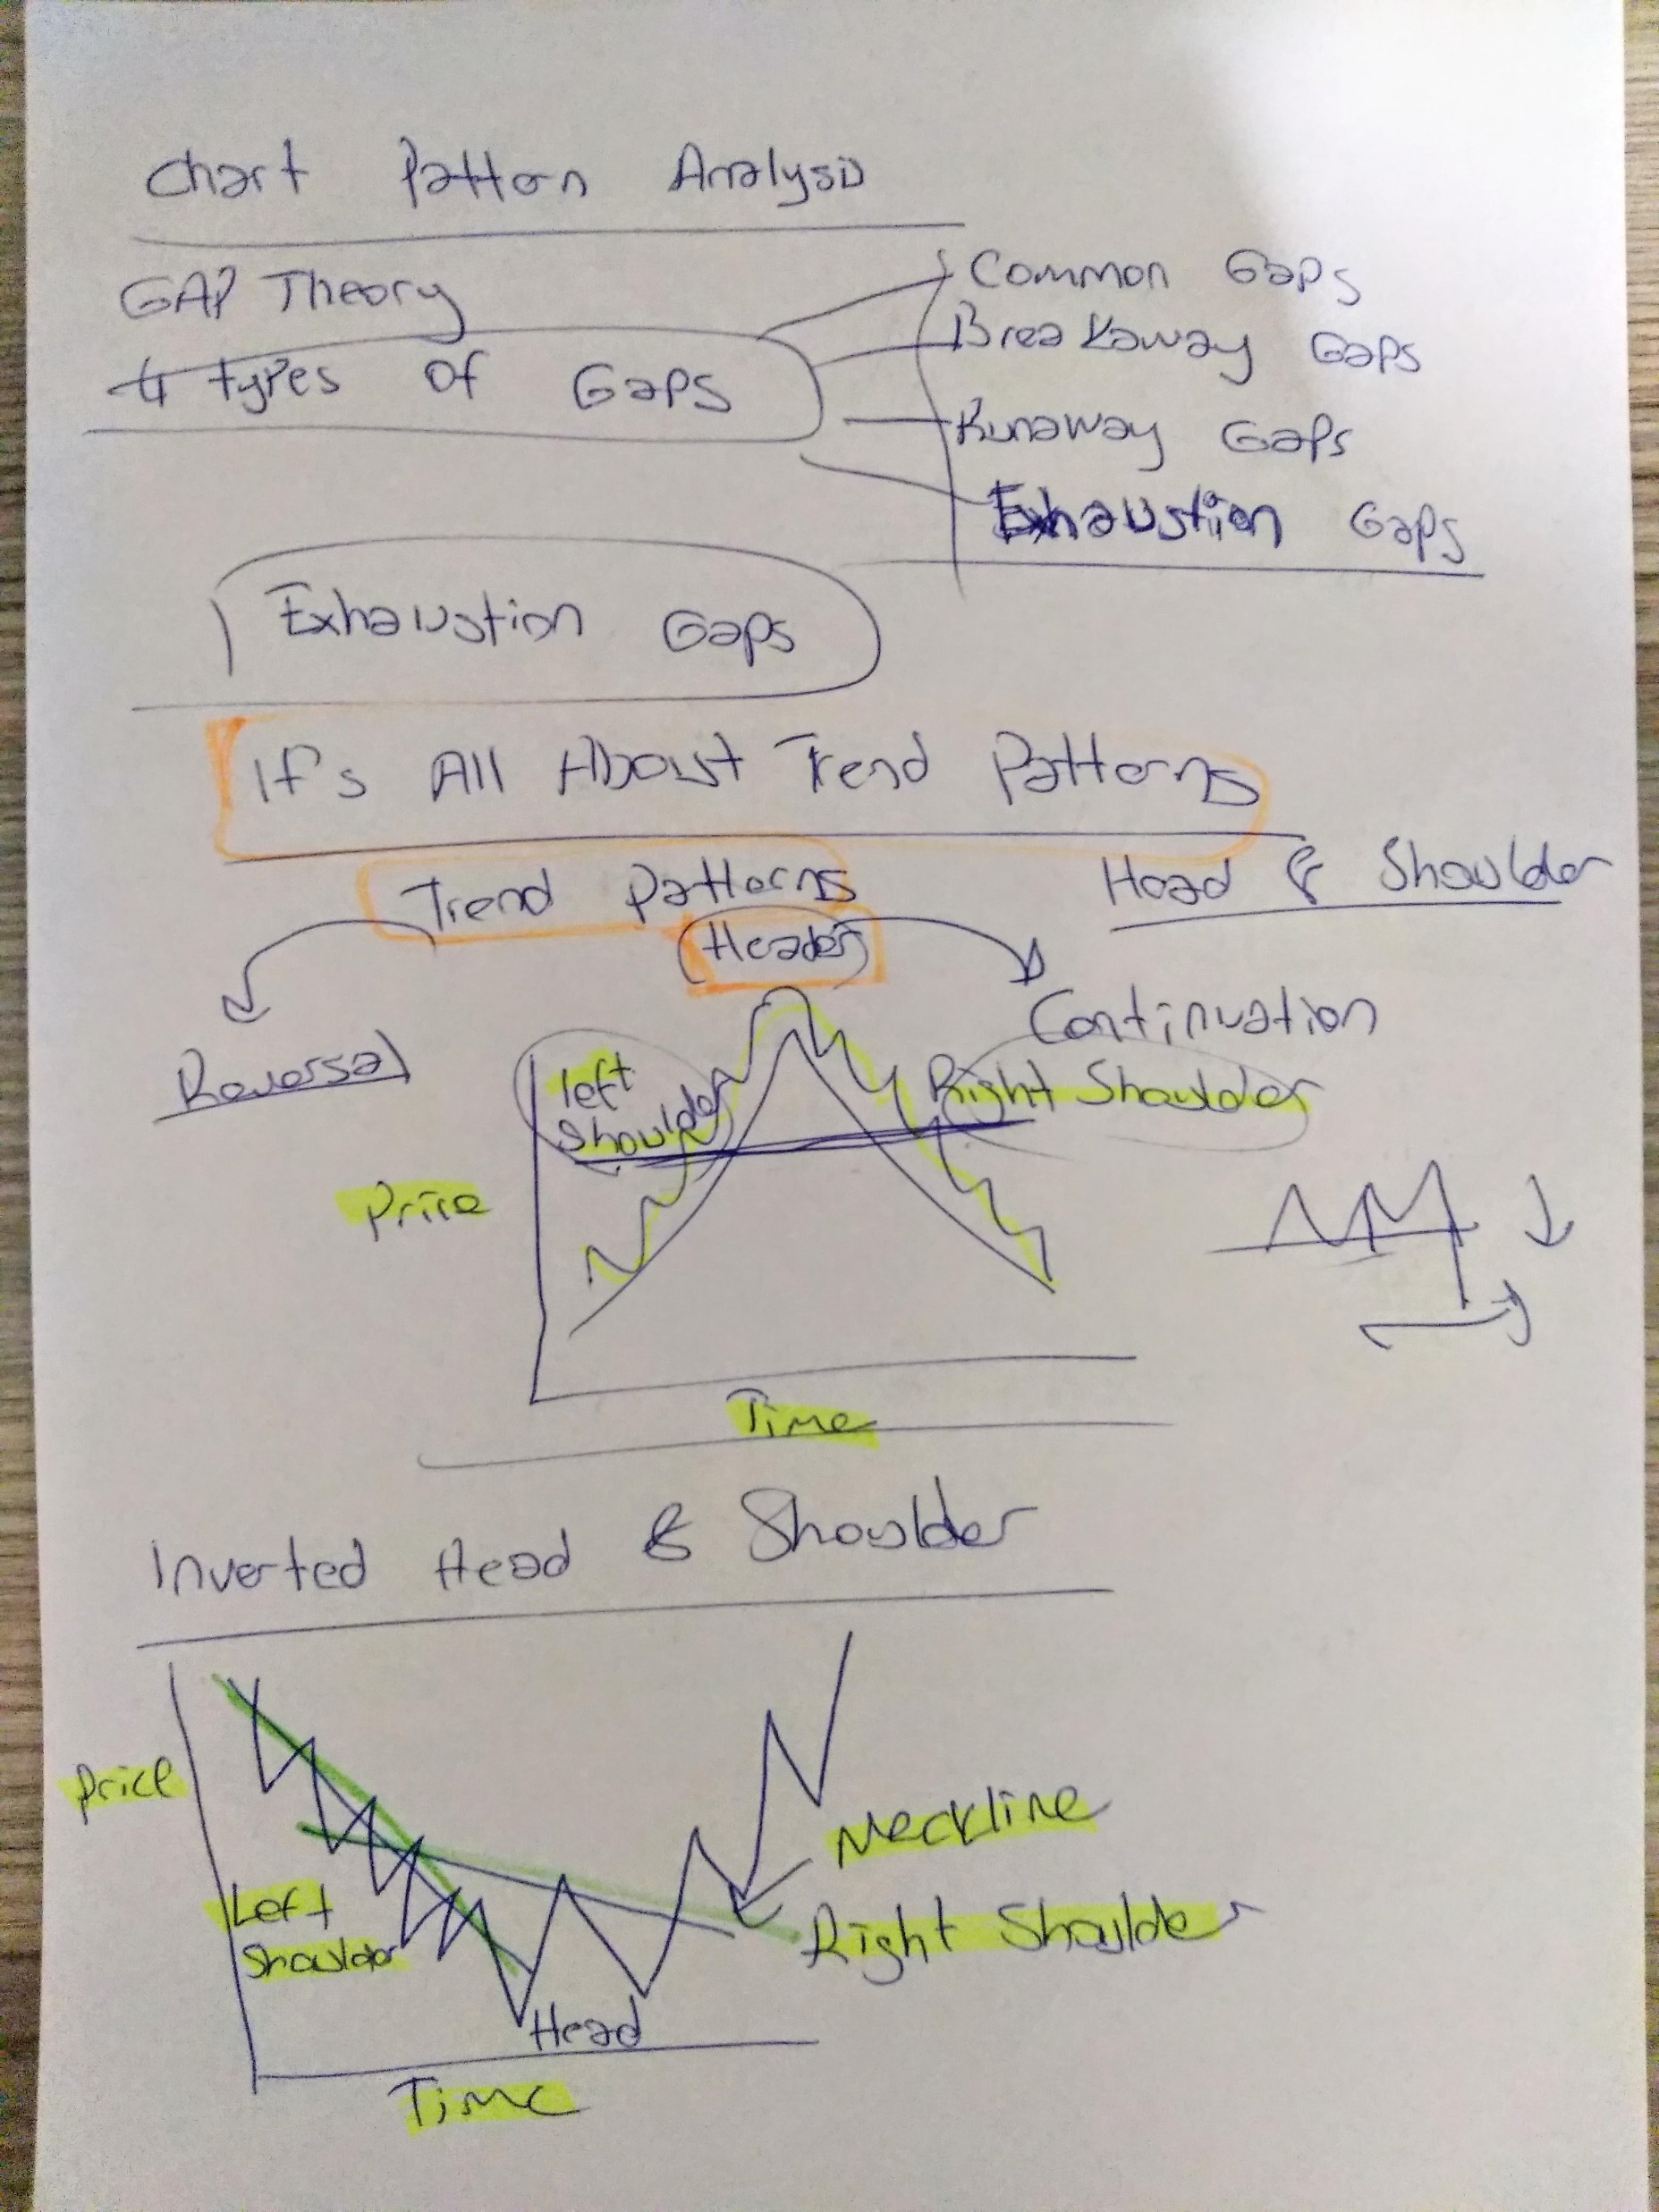 Chart Pattern Analysis
GAP Theory
4 types of Gaps
Common Gaps
Breakaway Gaps
Runaway Gaps
Exhaustion Gaps
Exhaustion Gaps
It's All About Trend Patterns
Trend Patterns
Head & Shoulder
Header
Reversal
Continuation
left
Shoulder
Right Shoulder
Price
Time
Inverted Head & Shoulder
Price
Neckline
Left
Shoulder
Right Shoulder
Head
Time